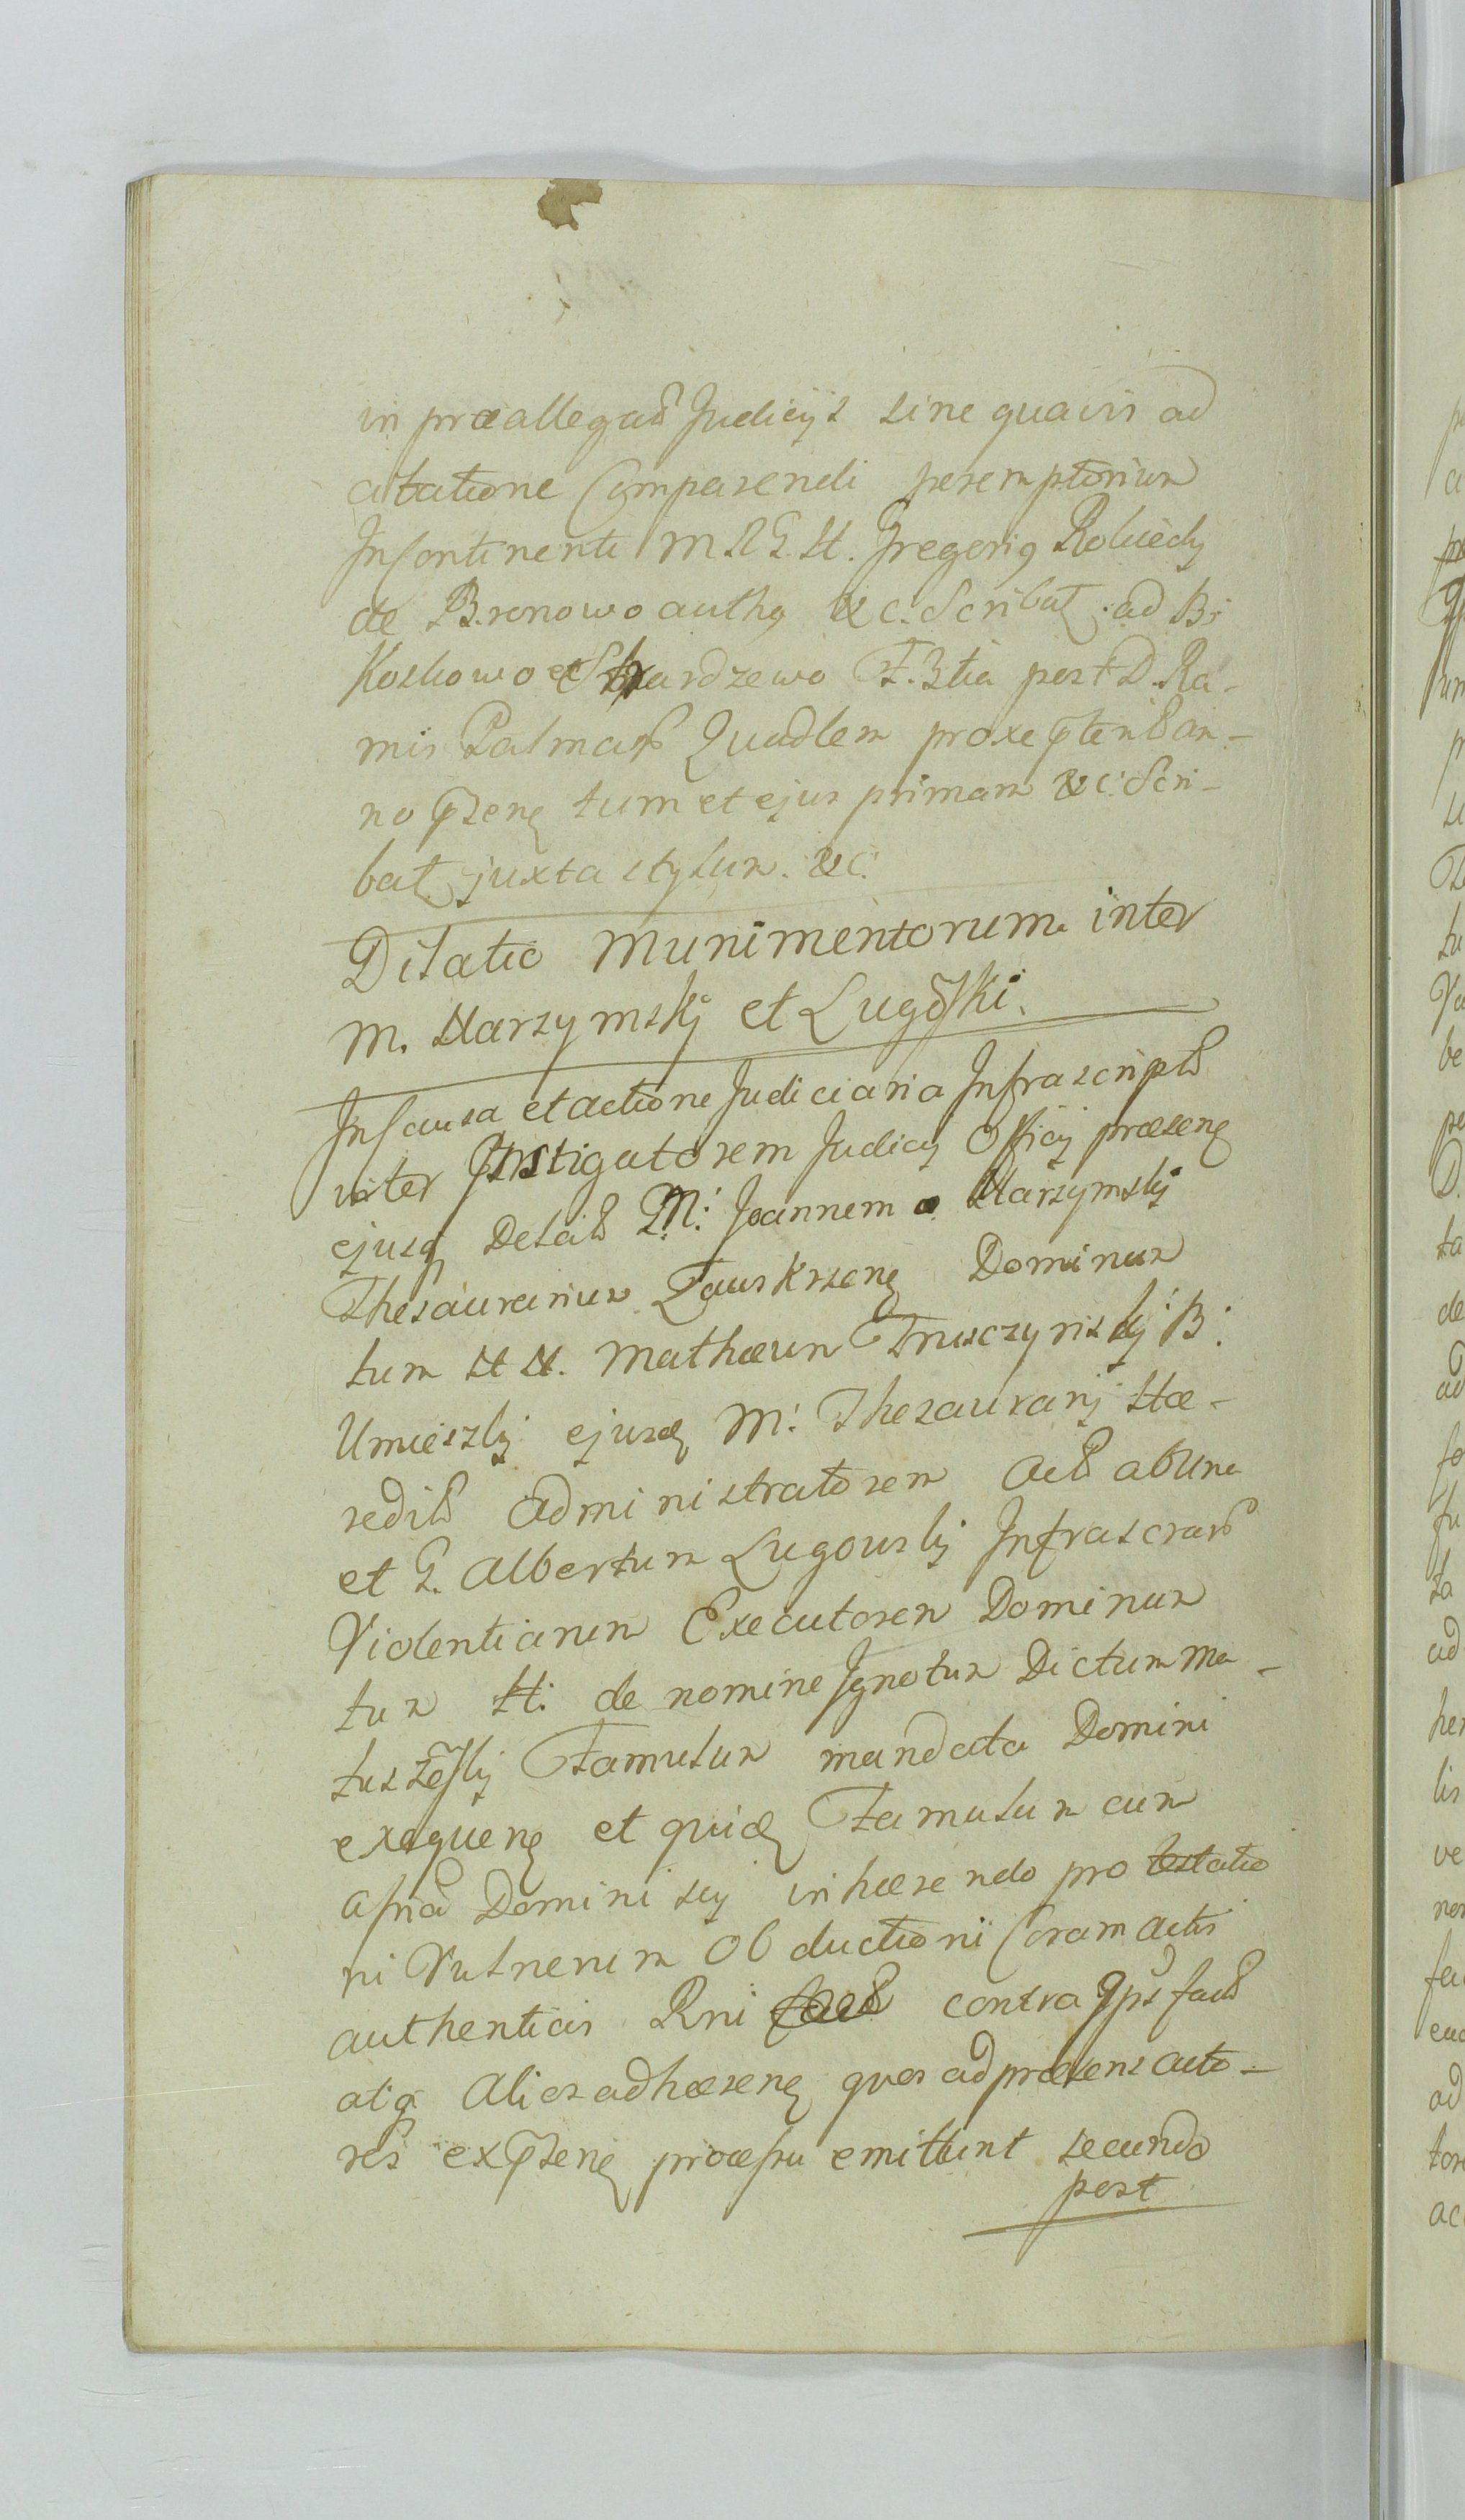 in præallegatis Judicijs sine quavis ad
citatione Comparendi peremptorium
Incontinenti M N G. H. Gregorig
de Bronowo authg &c. Scribat ad B:
Koskowo et Skardzewo F. 3tia post D. Ra-
mis Palmarum Quadlem proxe an-
no tum et ejus primam &c: Scri-
bat juxta stylum. &c:
Dilatio Munimentorum inter
M. Marzymskj et Lugōski.
In causa et actione Judiciaria Infrascripta
inter Instigatorem Judicij Officij præsen
ejusq Delat M: Joannem a Marzymskj
Thesaurarium Dominum
tum M M. Mathæum Trusczynskj B:
Umieskj ejusd M: Thesaurarij Hæ-
redit Administratorem Act ab una
et G. Albertum Lugowskj Infrascrar
Violentiarum Executorem Dominum
tum H. de nomine Ignotum Dictum Ma-
Famulum mandata Domini
exequen et quid Famulum cum
Domini sui inhærendo protestatio
ni Vulnerum Obductioni Coram actis
authenticis Rni contra Ipsos fact
atq Alios adhæren quos ad præsens acto-
res processu emittunt secundo
post